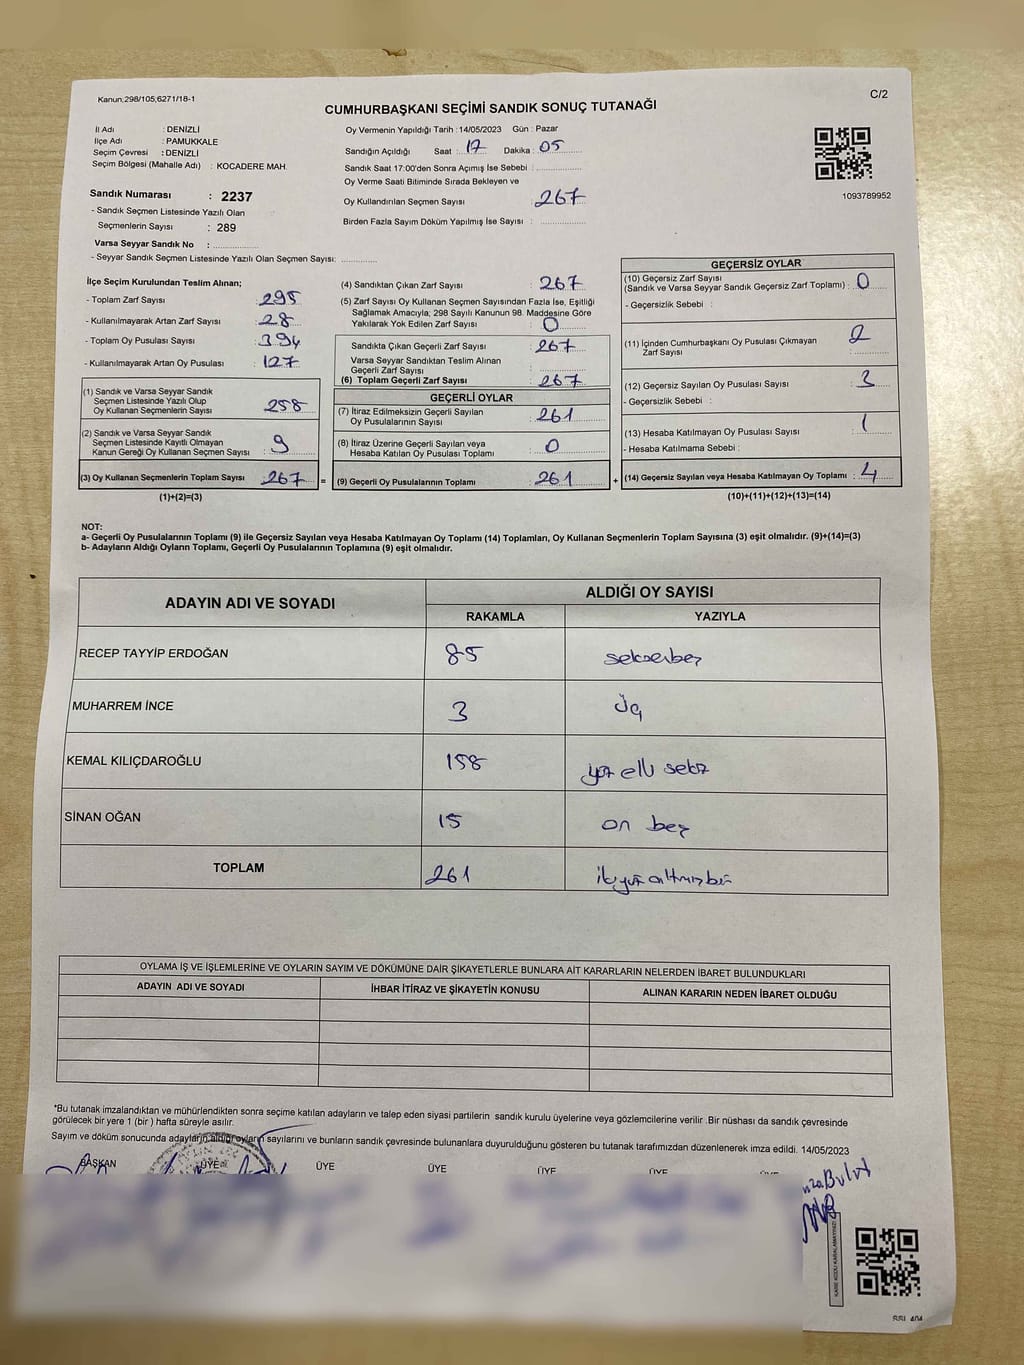 Kanun;298/105;6271/18-1
C/2
CUMHURBAŞKANI SEÇİMİ SANDIK SONUÇ TUTANAĞI
İl Adı : DENİZLİ
İlçe Adı : PAMUKKALE
Seçim Çevresi : DENİZLİ
Seçim Bölgesi (Mahalle Adı) : KOCADERE MAH.
Sandık Numarası : 2237
- Sandık Seçmen Listesinde Yazılı Olan
Seçmenlerin Sayısı : 289
Varsa Seyyar Sandık No : ..............
- Seyyar Sandık Seçmen Listesinde Yazılı Olan Seçmen Sayısı: ............
Oy Vermenin Yapıldığı Tarih : 14/05/2023 Gün : Pazar
Sandığın Açıldığı Saat : 17 Dakika : 05
Sandık Saat 17:00'den Sonra Açımış İse Sebebi : ..............
Oy Verme Saati Bitiminde Sırada Bekleyen ve
Oy Kullandırılan Seçmen Sayısı : 267
Birden Fazla Sayım Döküm Yapılmış İse Sayısı : ..............
1093789952
İlçe Seçim Kurulundan Teslim Alınan;
- Toplam Zarf Sayısı : 295
- Kullanılmayarak Artan Zarf Sayısı : 28
- Toplam Oy Pusulası Sayısı : 394
- Kullanılmayarak Artan Oy Pusulası : 127
(1) Sandık ve Varsa Seyyar Sandık
Seçmen Listesinde Yazılı Olup
Oy Kullanan Seçmenlerin Sayısı : 258
(2) Sandık ve Varsa Seyyar Sandık
Seçmen Listesinde Kayıtlı Olmayan
Kanun Gereği Oy Kullanan Seçmen Sayısı : 9
(3) Oy Kullanan Seçmenlerin Toplam Sayısı : 267 =
(1)+(2)=(3)
(4) Sandıktan Çıkan Zarf Sayısı : 267
(5) Zarf Sayısı Oy Kullanan Seçmen Sayısından Fazla İse, Eşitliği
Sağlamak Amacıyla; 298 Sayılı Kanunun 98. Maddesine Göre
Yakılarak Yok Edilen Zarf Sayısı : 0
Sandıkta Çıkan Geçerli Zarf Sayısı : 267
Varsa Seyyar Sandıktan Teslim Alınan
Geçerli Zarf Sayısı : ..............
(6) Toplam Geçerli Zarf Sayısı : 267
GEÇERLİ OYLAR
(7) İtiraz Edilmeksizin Geçerli Sayılan
Oy Pusulalarının Sayısı : 261
(8) İtiraz Üzerine Geçerli Sayılan veya
Hesaba Katılan Oy Pusulası Toplamı : 0
(9) Geçerli Oy Pusulalarının Toplamı : 261 +
GEÇERSİZ OYLAR
(10) Geçersiz Zarf Sayısı
(Sandık ve Varsa Seyyar Sandık Geçersiz Zarf Toplamı) : 0
- Geçersizlik Sebebi :
(11) İçinden Cumhurbaşkanı Oy Pusulası Çıkmayan
Zarf Sayısı : 2
(12) Geçersiz Sayılan Oy Pusulası Sayısı : 3
- Geçersizlik Sebebi :
(13) Hesaba Katılmayan Oy Pusulası Sayısı : 1
- Hesaba Katılmama Sebebi :
(14) Geçersiz Sayılan veya Hesaba Katılmayan Oy Toplamı : 4
(10)+(11)+(12)+(13)=(14)
NOT:
a- Geçerli Oy Pusulalarının Toplamı (9) ile Geçersiz Sayılan veya Hesaba Katılmayan Oy Toplamı (14) Toplamları, Oy Kullanan Seçmenlerin Toplam Sayısına (3) eşit olmalıdır. (9)+(14)=(3)
b- Adayların Aldığı Oyların Toplamı, Geçerli Oy Pusulalarının Toplamına (9) eşit olmalıdır.
ADAYIN ADI VE SOYADI
ALDIĞI OY SAYISI
RAKAMLA YAZIYLA
RECEP TAYYİP ERDOĞAN 85 seksenbeş
MUHARREM İNCE 3 Üç
KEMAL KILIÇDAROĞLU 158 yüz elli sekiz
SİNAN OĞAN 15 on beş
TOPLAM 261 ikiyüzaltmışbir
OYLAMA İŞ VE İŞLEMLERİNE VE OYLARIN SAYIM VE DÖKÜMÜNE DAİR ŞİKAYETLERLE BUNLARA AİT KARARLARIN NELERDEN İBARET BULUNDUKLARI
ADAYIN ADI VE SOYADI İHBAR İTİRAZ VE ŞİKAYETİN KONUSU ALINAN KARARIN NEDEN İBARET OLDUĞU
*Bu tutanak imzalandıktan ve mühürlendikten sonra seçime katılan adayların ve talep eden siyasi partilerin sandık kurulu üyelerine veya gözlemcilerine verilir. Bir nüshası da sandık çevresinde
görülecek bir yere 1 (bir ) hafta süreyle asılır.
Sayım ve döküm sonucunda adayların aldığı oyların sayılarını ve bunların sandık çevresinde bulunanlara duyurulduğunu gösteren bu tutanak tarafımızdan düzenlenerek imza edildi. 14/05/2023
BAŞKAN ÜYE ÜYE ÜYE ÜYE ÜYE ÜYE
Bulut
KARE KODU KARALAMAYINIZ!